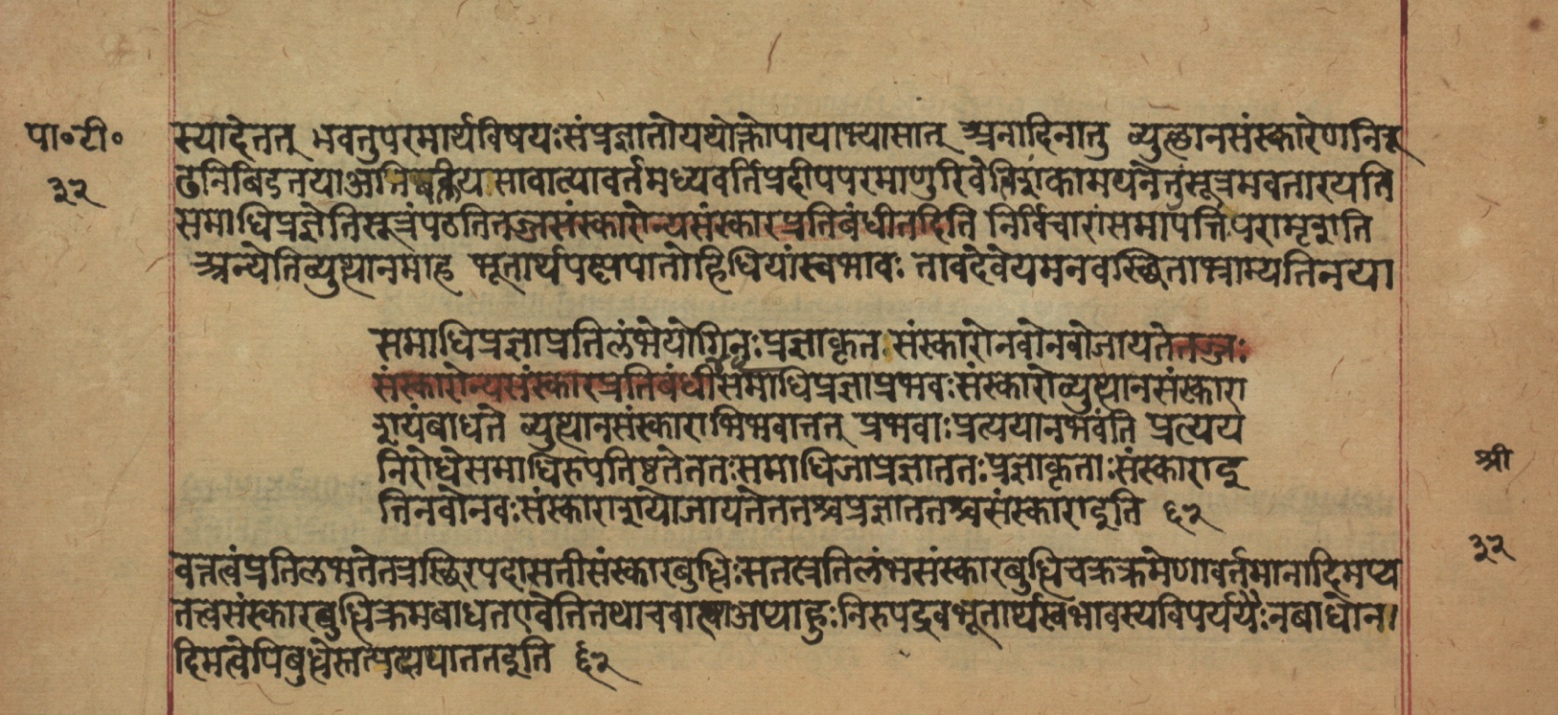 पा॰टी॰
३२
स्यादेतत् भवतुपरमार्थविषयःसंप्रज्ञातोयथोक्तोपायाभ्यासात् अनादिनातु व्युत्थानसंस्कारेणनिरू
ढनिबिडतयाप्रतिबंधनीया सावात्यावर्तमध्यवर्तिप्रदीपपरमाणुरिवेतिशंकामपनेतुंसूत्रमवतारयति
समाधिप्रज्ञेतिसूत्रंपठतितज्जःसंस्कारोन्यसंस्कारप्रतिबंधीतदिति निर्विचारांसमापत्तिंपरामृशति
अन्येतिव्युत्थानमाह भूतार्थपक्षपातोहिधियांस्वभावः तावदेवेयमनवस्थिताभ्राम्यतिनया
समाधिप्रज्ञाप्रतिलंभेयोगिनःप्रज्ञाकृतःसंस्कारोनवोनवोजायतेतज्जः
संस्कारोन्यसंस्कारप्रतिबंधीसमाधिप्रज्ञाप्रभवःसंस्कारोव्युत्थानसंस्कारा
शयंबाधते व्युत्थानसंस्काराभिभवात्तत् प्रभवाःप्रत्ययानभवंति प्रत्यय
निरोधेसमाधिरुपतिष्ठतेततःसमाधिजाप्रज्ञाततःप्रज्ञाकृताःसंस्काराइ
तिनवोनवःसंस्काराशयोजायतेततश्चप्रज्ञाततश्चसंस्काराइति ६२
श्री
३२
वत्तत्वंप्रतिलभतेतत्रस्थिरपदासतीसंस्कारबुद्धिःसतस्वेतिलंभसंस्कारबुद्धिचक्रक्रमेणावर्तमानादिमप्य
तत्वसंस्कारबुद्धिक्रमबाधतएवेतितथाचबाह्याअप्याहुःनिरुपद्रवभूतार्थस्वभावस्यविपर्ययैःनबाधोन
दिमत्वेपिबुद्धेस्तत्पक्षपाततइति ६२